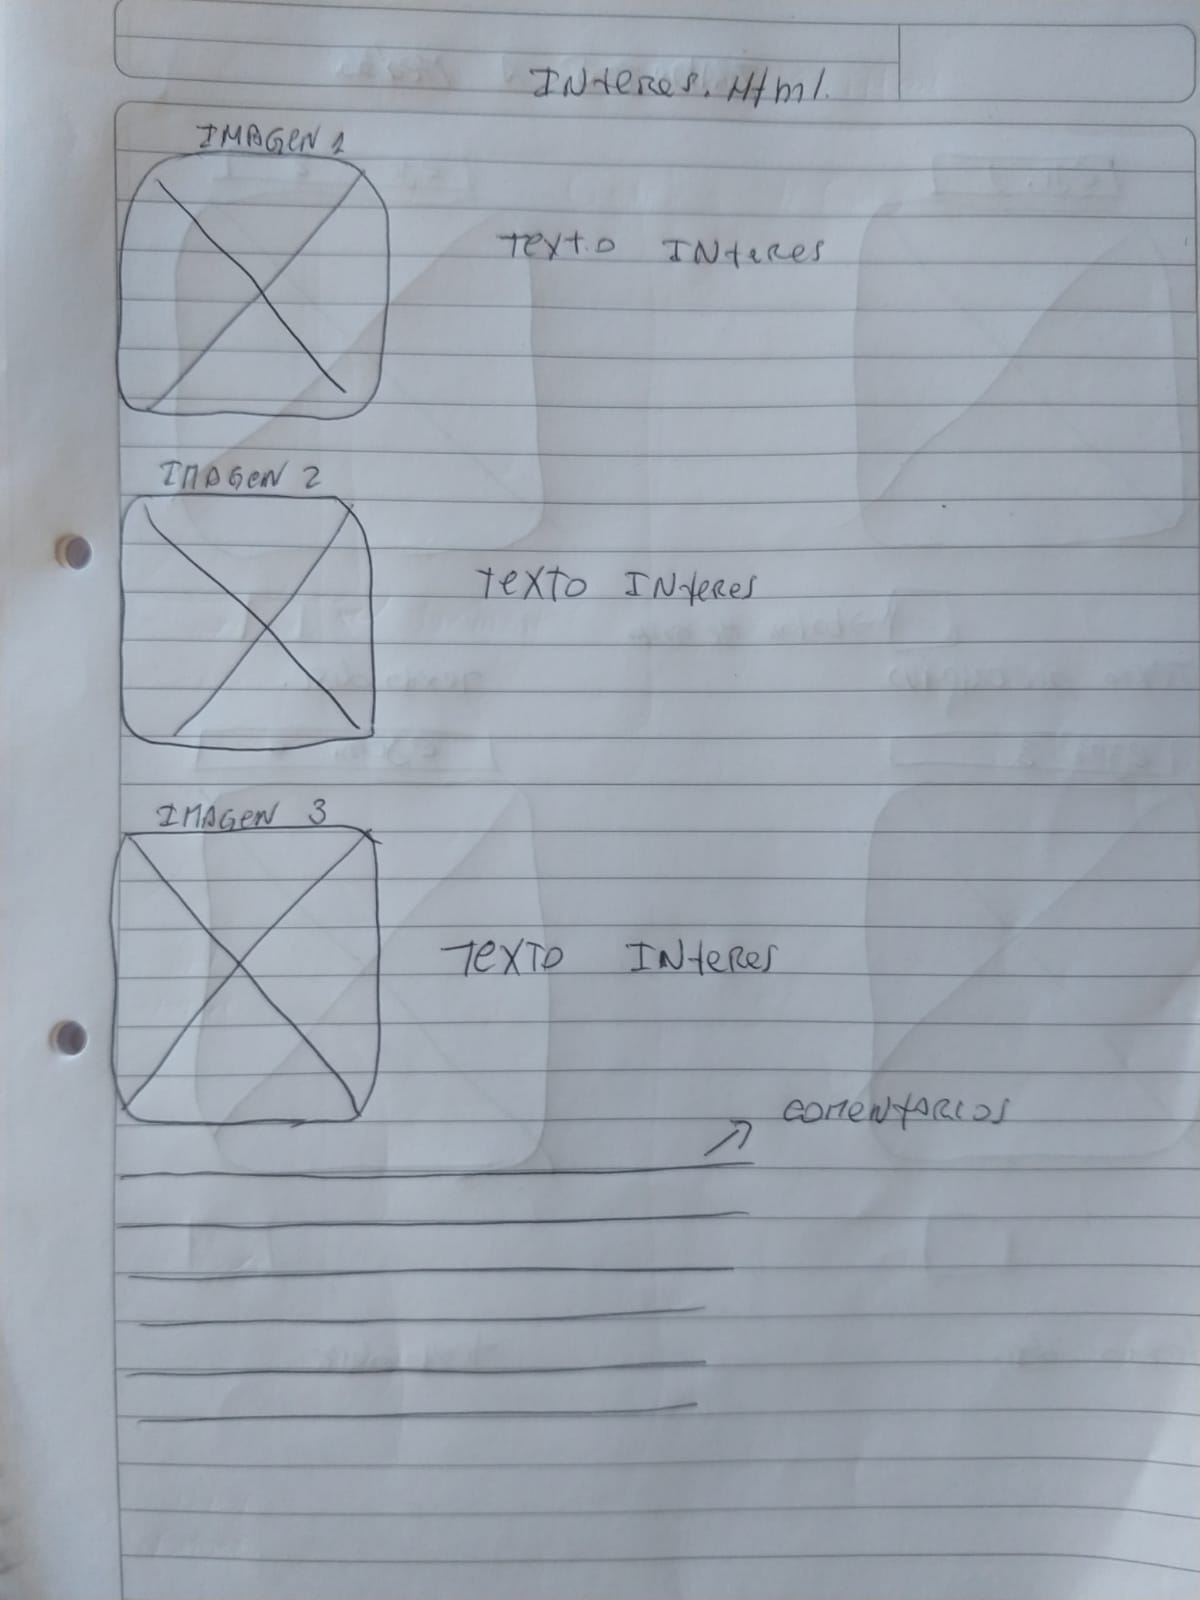 INteres.Html.
IMAGEN 1
TEXTO INteRes
IMAGEN 2
TEXTO INteRes
IMAGEN 3
TEXTO INteRes
COMENTARIOS